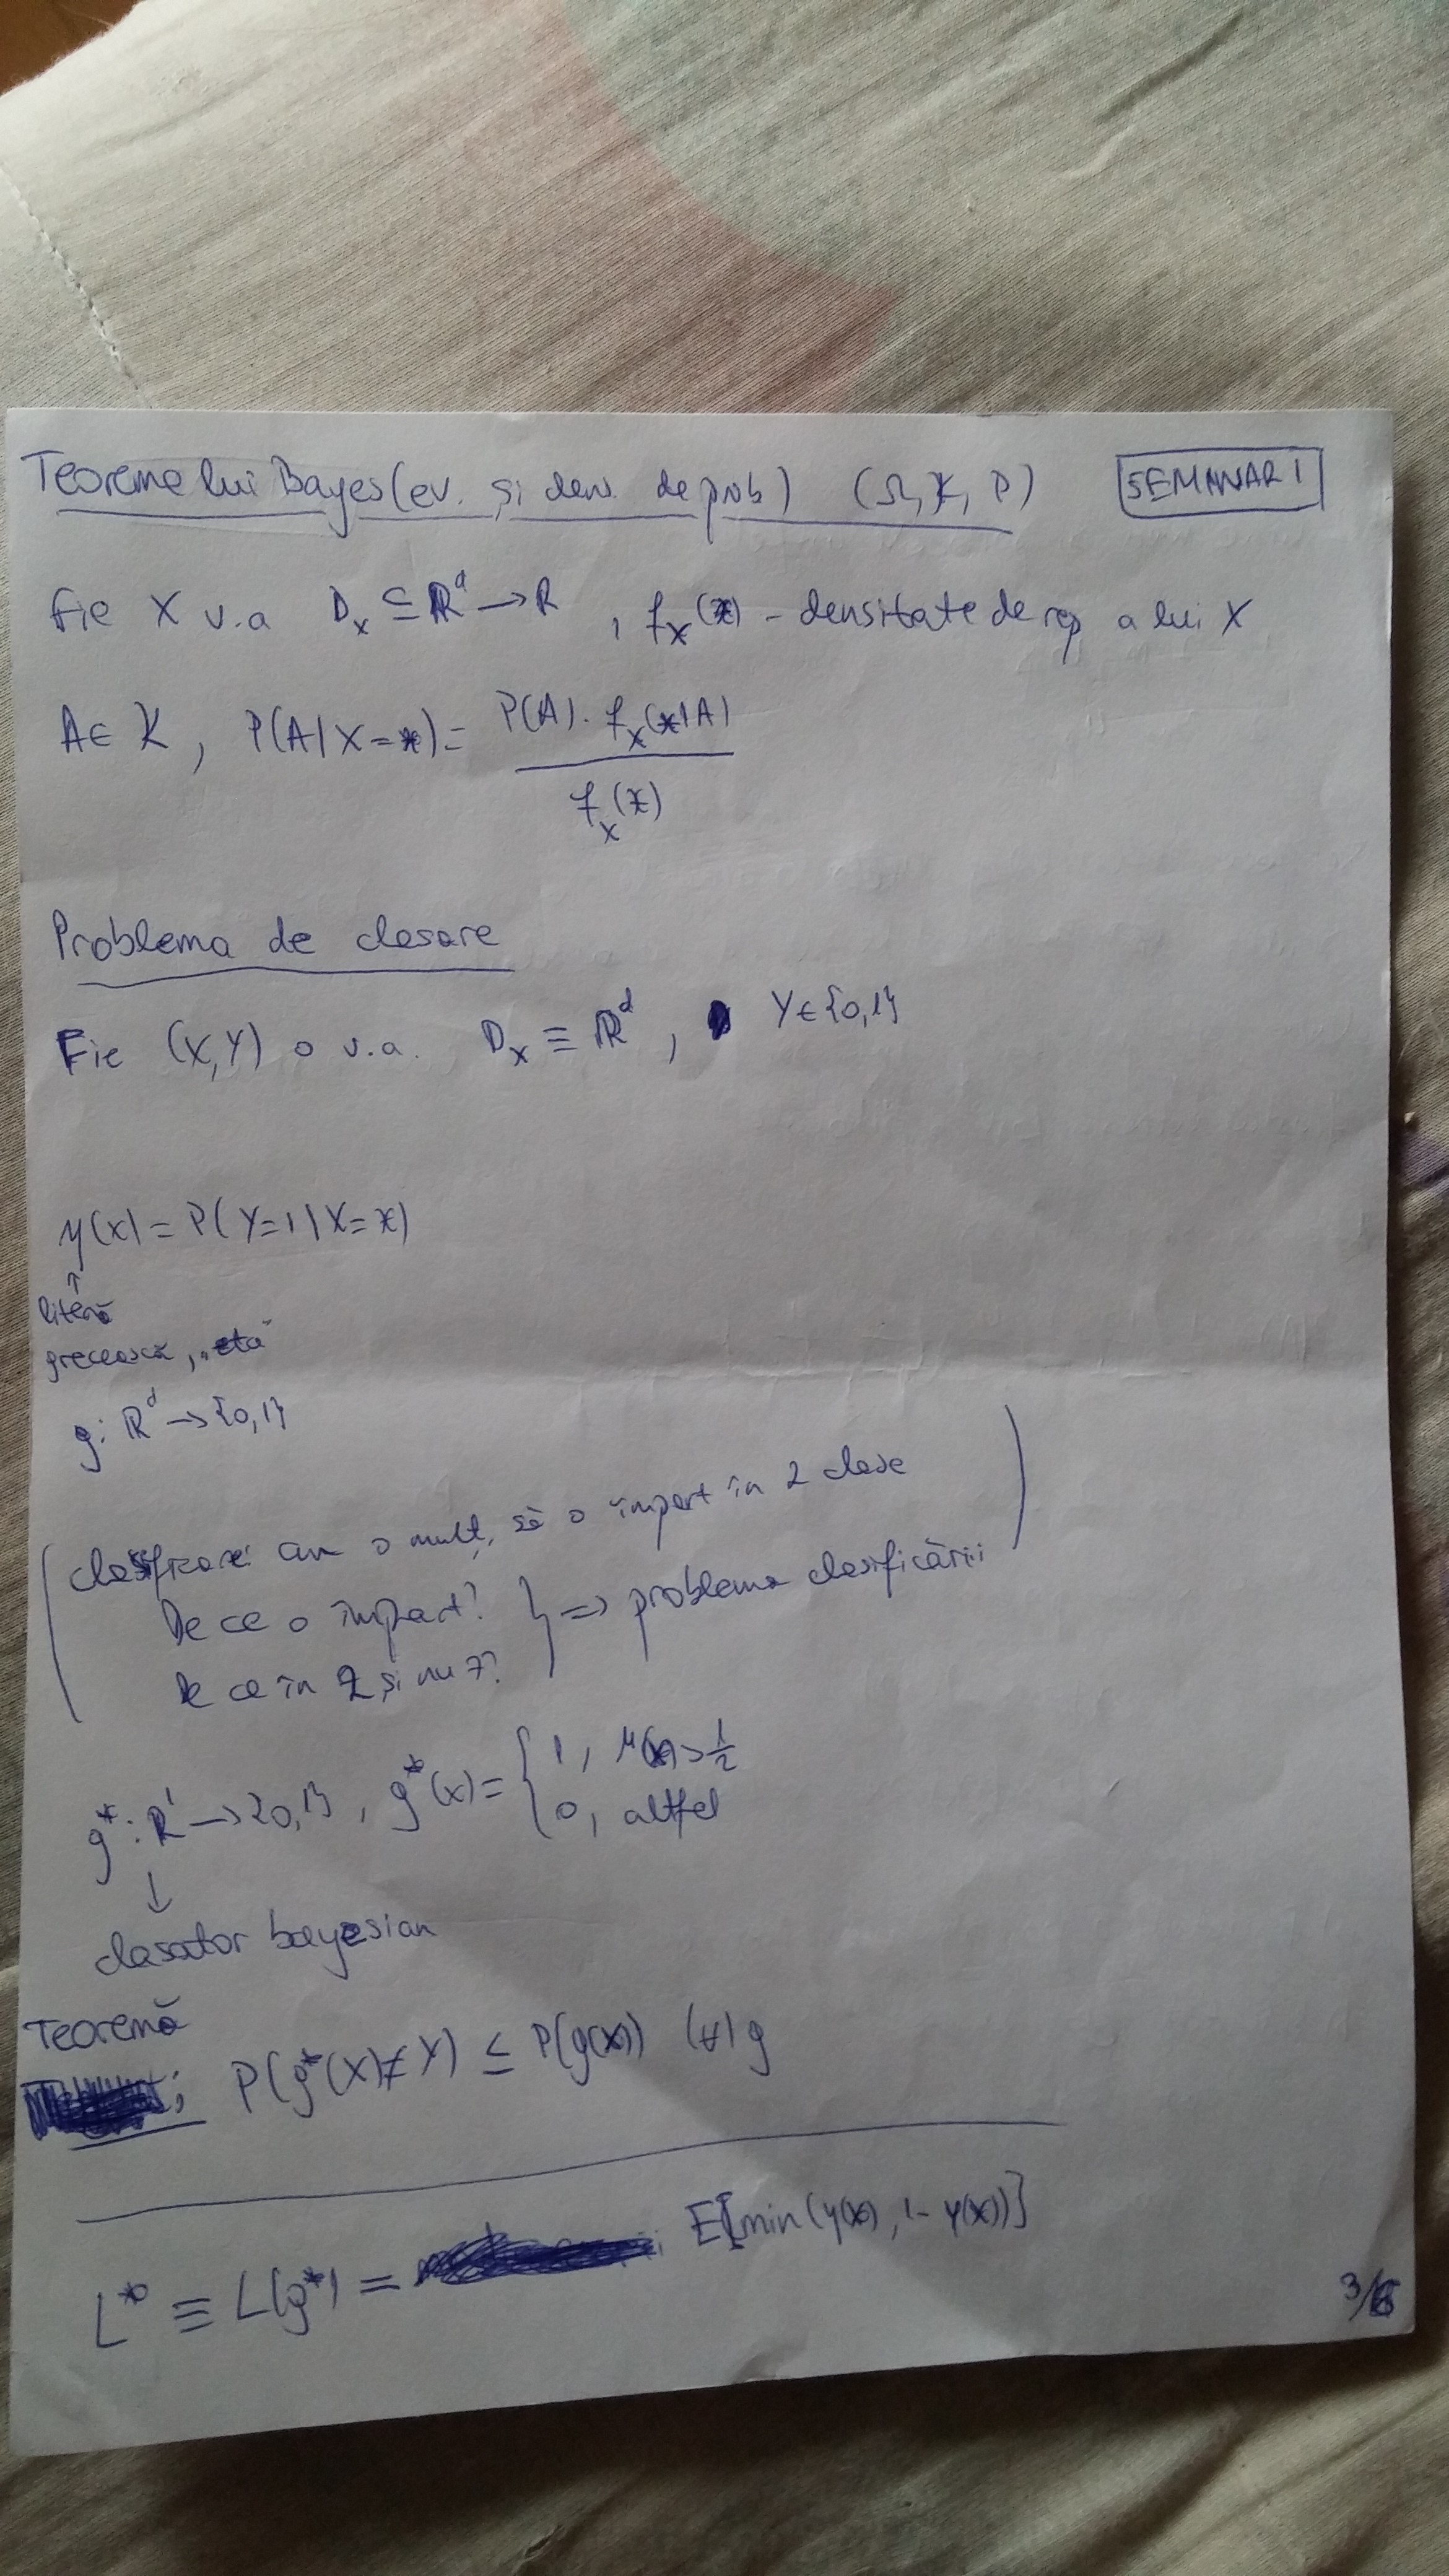 Teorema lui Bayes (ev. și dens. de prob) (Ω, K, P) SEMINAR 1
Fie X v.a D_X ⊆ ℝ^d → R , f_X(x) - densitate de rep a lui X
A ∈ K , P(A|X=x) = P(A) · f_X(x|A) / f_X(x)
Problema de clasare
Fie (X,Y) o v.a. D_X ≡ ℝ^d , Y ∈ {0,1}
η(x) = P(Y=1|X=x)
↑
literă
grecească, „eta"
g: ℝ^d → {0,1}
(clasificare: am o mulț, să o împart în 2 clase
De ce o împart?
De ce în 2 și nu 7? } => problema clasificării)
g*: ℝ^d → {0,1}, g*(x) = { 1, μ(x) > 1/2
0, altfel
↓
clasator bayesian
Teoremă
: P(g*(X) ≠ Y) ≤ P(g(x)) (∀) g
L* ≡ L(g*) = E[min(η(x), 1-η(x))]
3/6